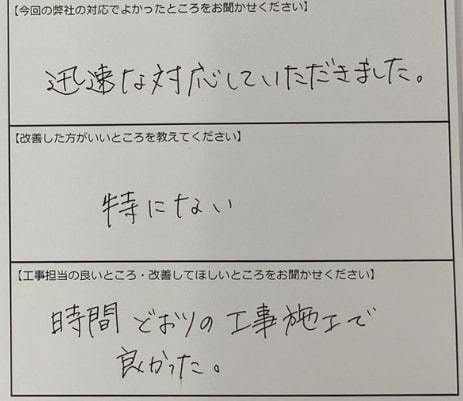 【今回の弊社の対応でよかったところをお聞かせください】
迅速な対応していただきました。
【改善した方がいいところを教えてください】
特にない
【工事担当の良いところ・改善してほしいところをお聞かせください】
時間どおりの工事施工で
良かった。